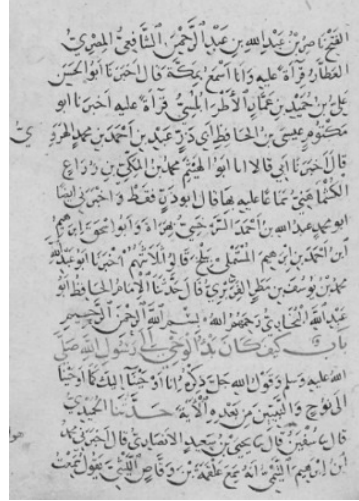 الفتح ناصر بن عبد الله بن عبد الرحمن الشافعي المصري
العطار قراءة عليه وانا اسمع بمكة قال اخبرنا ابو الحسن
علي بن حميد بن عمار الأطرابلسي قراءة عليه اخبرنا ابو
مكتوم عيسى بن الحافظ ابي ذر عبد بن احمد بن محمد الهروي
قال اخبرنا ابي قال انا ابو الهيثم محمد بن المكي بن زراع
الكشماهني سماعا عليه بها قال ابو ذر فقط واخبرني ايضا
ابو محمد عبد الله بن احمد السرخسي بهراة وابو اسحق ابرهيم
ابن احمد بن ابرهيم المستملي ببلخ قالوا ثلاثتهم اخبرنا ابو عبد الله
محمد بن يوسف بن مطر الفربري قال حدثنا الامام الحافظ ابو
عبد الله البخاري رحمهم الله بسم الله الرحمن الرحيم
باب كيف كان بدء الوحي الى رسول الله صلى
الله عليه وسلم وقول الله جل ذكره انا اوحينا اليك كما اوحينا
الى نوح والنبيين من بعده الآية حدثنا الحميدي
قال سفين قال يحيى بن سعيد الانصاري قال اخبرني محمد
ابن ابرهيم التيمي انه سمع علقمة بن وقاص الليثي يقول سمعت